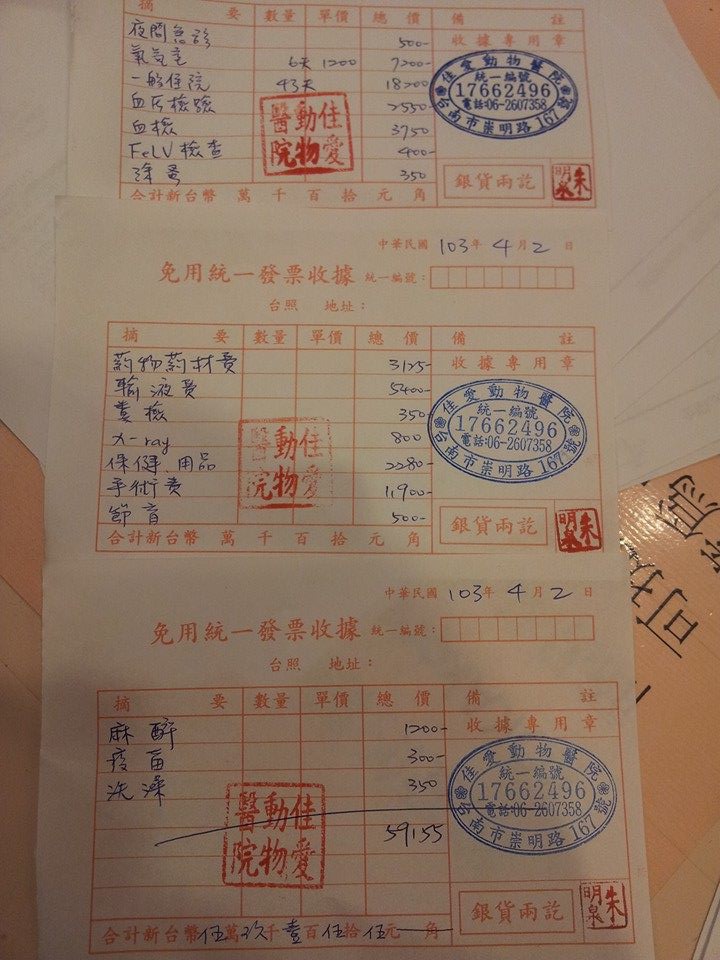 摘 要 數量 單價 總價 備 註
夜間急診 500- 收據專用章
氧気室 6天 1200 7200-
一般住院 43天 18200
血压檢驗 2550-
血檢 3750
FeLV 檢查 400-
除蚤 350
佳愛動物醫院
統一編號
17662496
電話:06-2607358
台南市崇明路167號
佳愛動物醫院
銀貨兩訖
朱明泉
合計新台幣 萬 千 百 拾 元 角
中華民國 103年 4月 2日
免用統一發票收據 統一編號:
台照 地址:
摘 要 數量 單價 總價 備 註
葯物葯材費 3125- 收據專用章
輸液費 5400-
糞檢 350
x-ray 800
保健用品 2280-
手術費 11900-
節育 500-
佳愛動物醫院
統一編號
17662496
電話:06-2607358
台南市崇明路167號
佳愛動物醫院
銀貨兩訖
朱明泉
合計新台幣 萬 千 百 拾 元 角
中華民國 103年 4月 2日
免用統一發票收據 統一編號:
台照 地址:
摘 要 數量 單價 總價 備 註
麻醉 1200- 收據專用章
疫苗 300-
洗澡 350
59155
佳愛動物醫院
統一編號
17662496
電話:06-2607358
台南市崇明路167號
佳愛動物醫院
銀貨兩訖
朱明泉
合計新台幣伍萬玖千壹百伍拾伍元 角